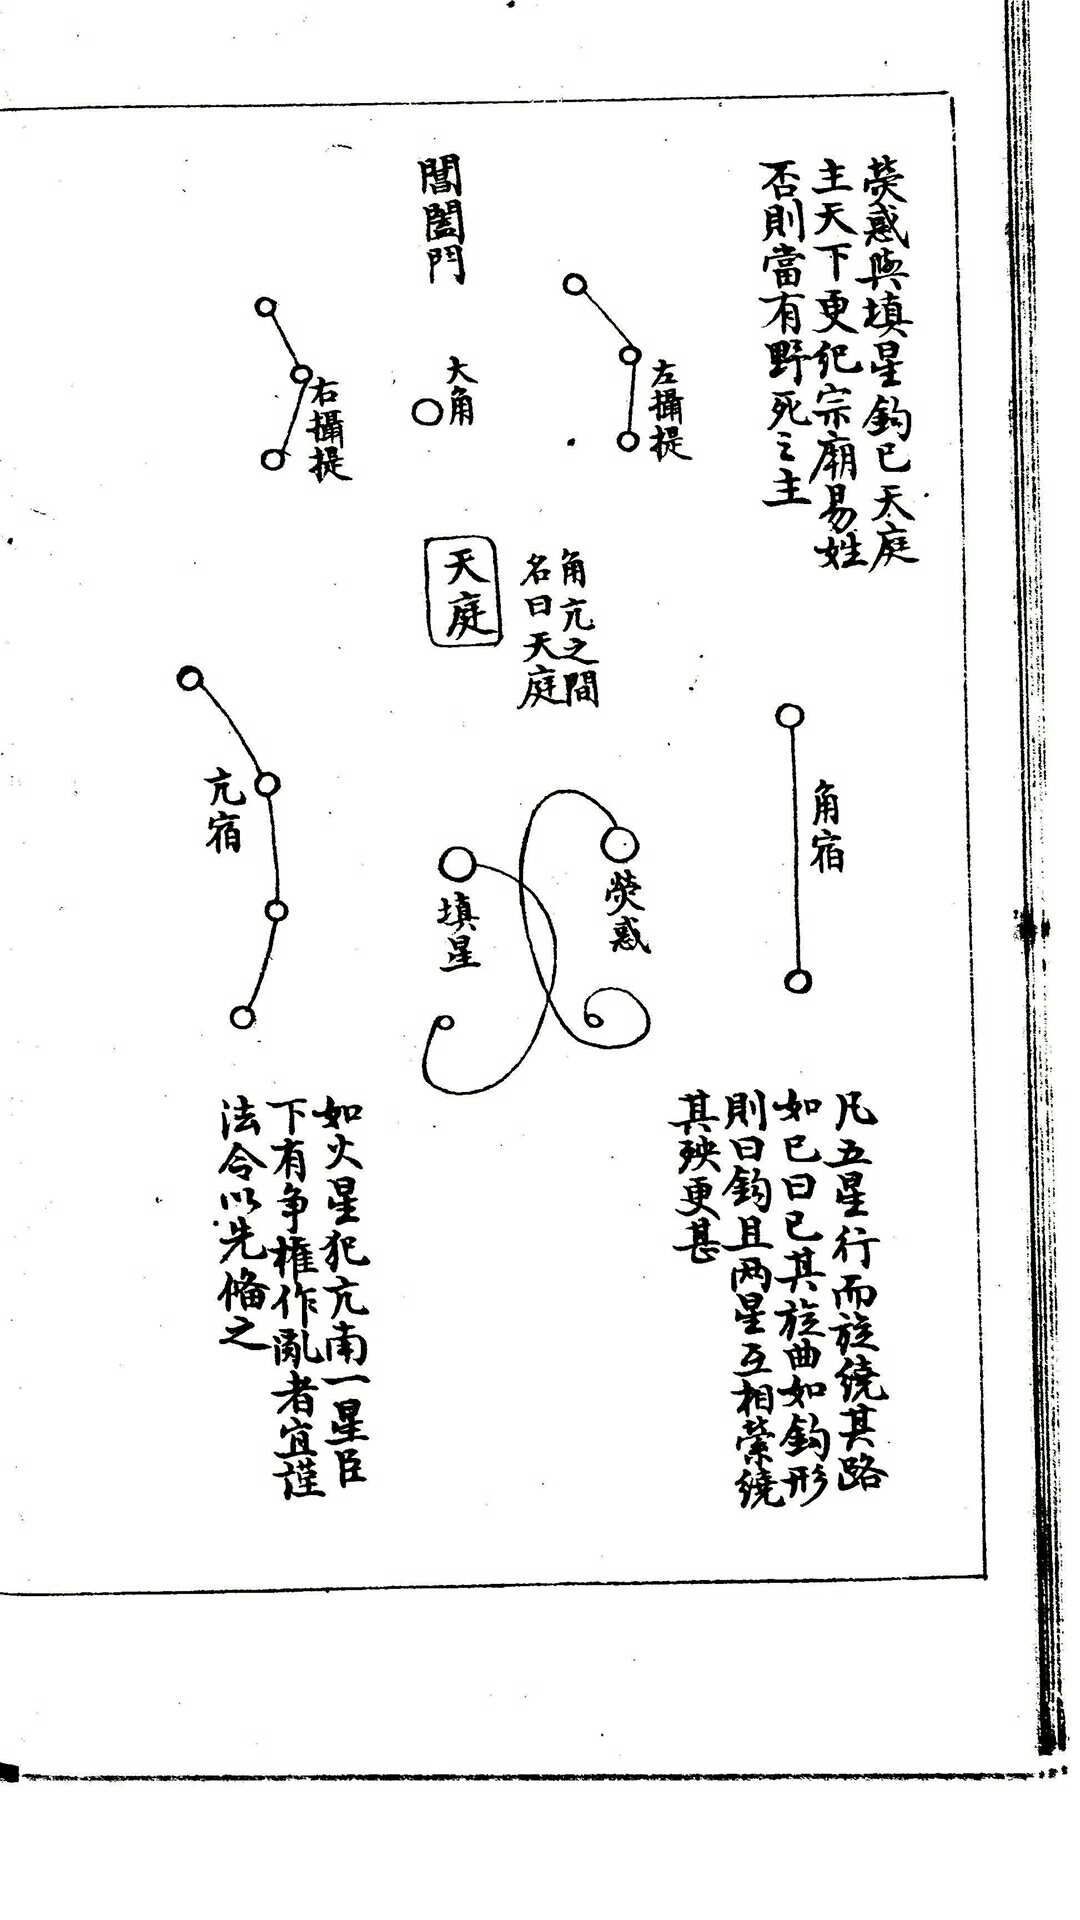 熒惑與填星鈎已天庭
主天下更紀宗廟易姓
否則當有野死之主
左攝提
閶闔門
大角
右攝提
角亢之間
名曰天庭
天庭
角宿
熒惑
填星
亢宿
凡五星行而旋繞其路
如已曰已其旋曲如鈎形
則曰鈎且两星互相縈繞
其殃更甚
如火星犯亢南一星臣
下有争權作亂者宜謹
法令以先修之